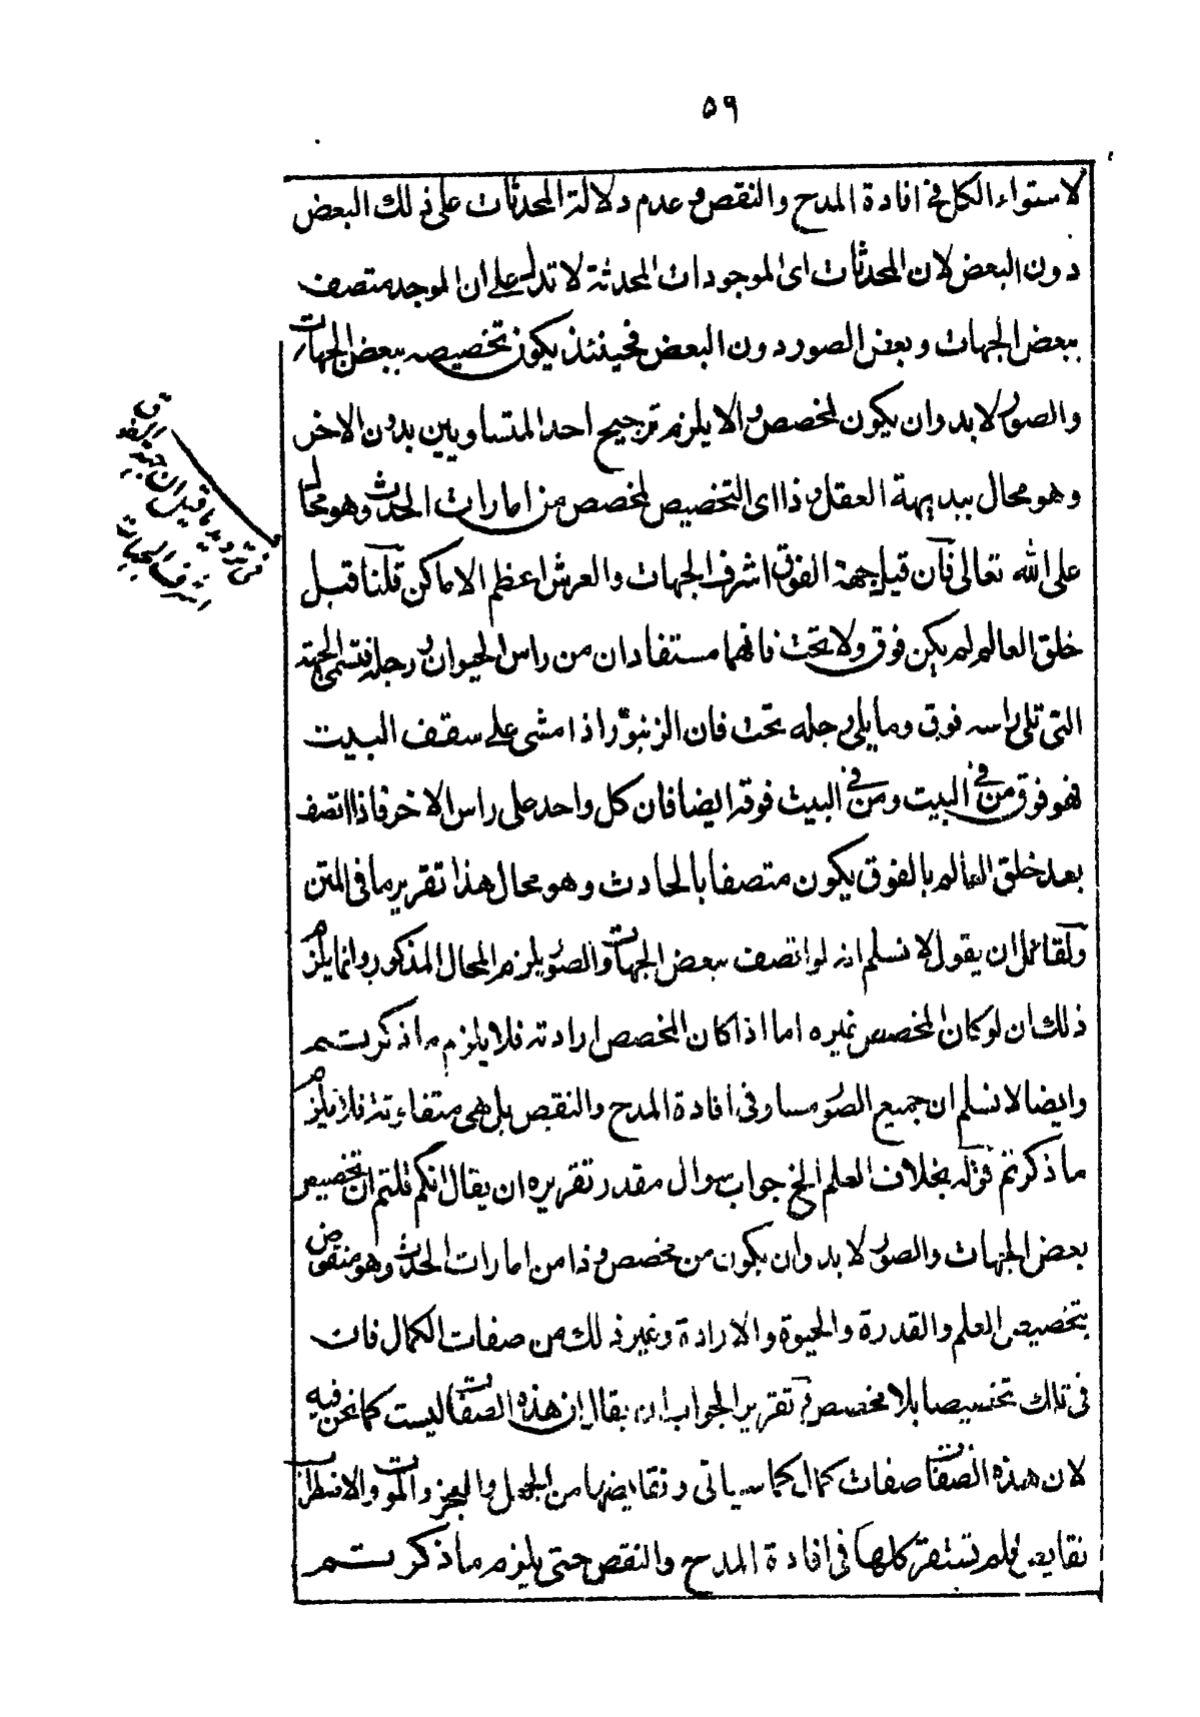 ٥٩
لاستواء الكل فى افادة المدح والنقص و عدم دلالة المحدثات على ذلك البعض
دون البعض لان المحدثات اى الموجودات المحدثة لا تدل على ان الموجد متصف
ببعض الجهات وبعض الصور دون البعض فحينئذ يكون تخصيصه ببعض الجهات
والصور لا بد وان يكون لمخصص والا يلزم ترجيح احد المتساويين بدون الاخر
وهو محال ببديهة العقل وذا اى التخصيص لمخصص من امارات الحدث وهو محال
على الله تعالى فان قيل جهة الفوق اشرف الجهات والعرش اعظم الاماكن قلنا قبل
خلق العالم لم يكن فوق ولا تحت فانهما مستفادان من راس الحيوان و رجله فتسمى الجهة
التى تلى راسه فوق وما يلى رجله تحت فان الزنبور اذا مشى على سقف البيت
فهو فوق من فى البيت ومن فى البيت فوقه ايضا فان كل واحد على راس الاخر فاذا اتصف
بعد خلق العالم بالفوق يكون متصفا بالحادث وهو محال هذا تقرير ما فى المتن
ولقائل ان يقول لا نسلم انه لو اتصف ببعض الجهات والصور يلزم المحال المذكور وانما يلزم
ذلك ان لو كان المخصص غيره اما اذا كان المخصص ارادته فلا يلزم ما ذكرتم
وايضا لا نسلم ان جميع الصور مساو فى افادة المدح والنقص بل هى متفاوتة فلا يلزم
ما ذكرتم قوله بخلاف العلم الخ جواب سوال مقدر تقريره ان يقال انكم قلتم ان تخصيص
بعض الجهات والصور لا بد وان يكون من مخصص وذا من امارات الحدث وهو منقوض
بتخصيص العلم والقدرة والحيوة والارادة وغير ذلك من صفات الكمال فان
فى تلك تخصيصا بلا مخصص و تقرير الجواب ان يقال ان هذه الصفات ليست كما نحن فيه
لان هذه الصفات صفات كمال كما سياتى ونقايضها من الجهل والعجز والموت والاضطرار
نقايص فلم تستقر كلها فى افادة المدح والنقص حتى يلزم ما ذكرتم
فى ترديد ما قيل ان جهة الفوق
اشرف الجهات